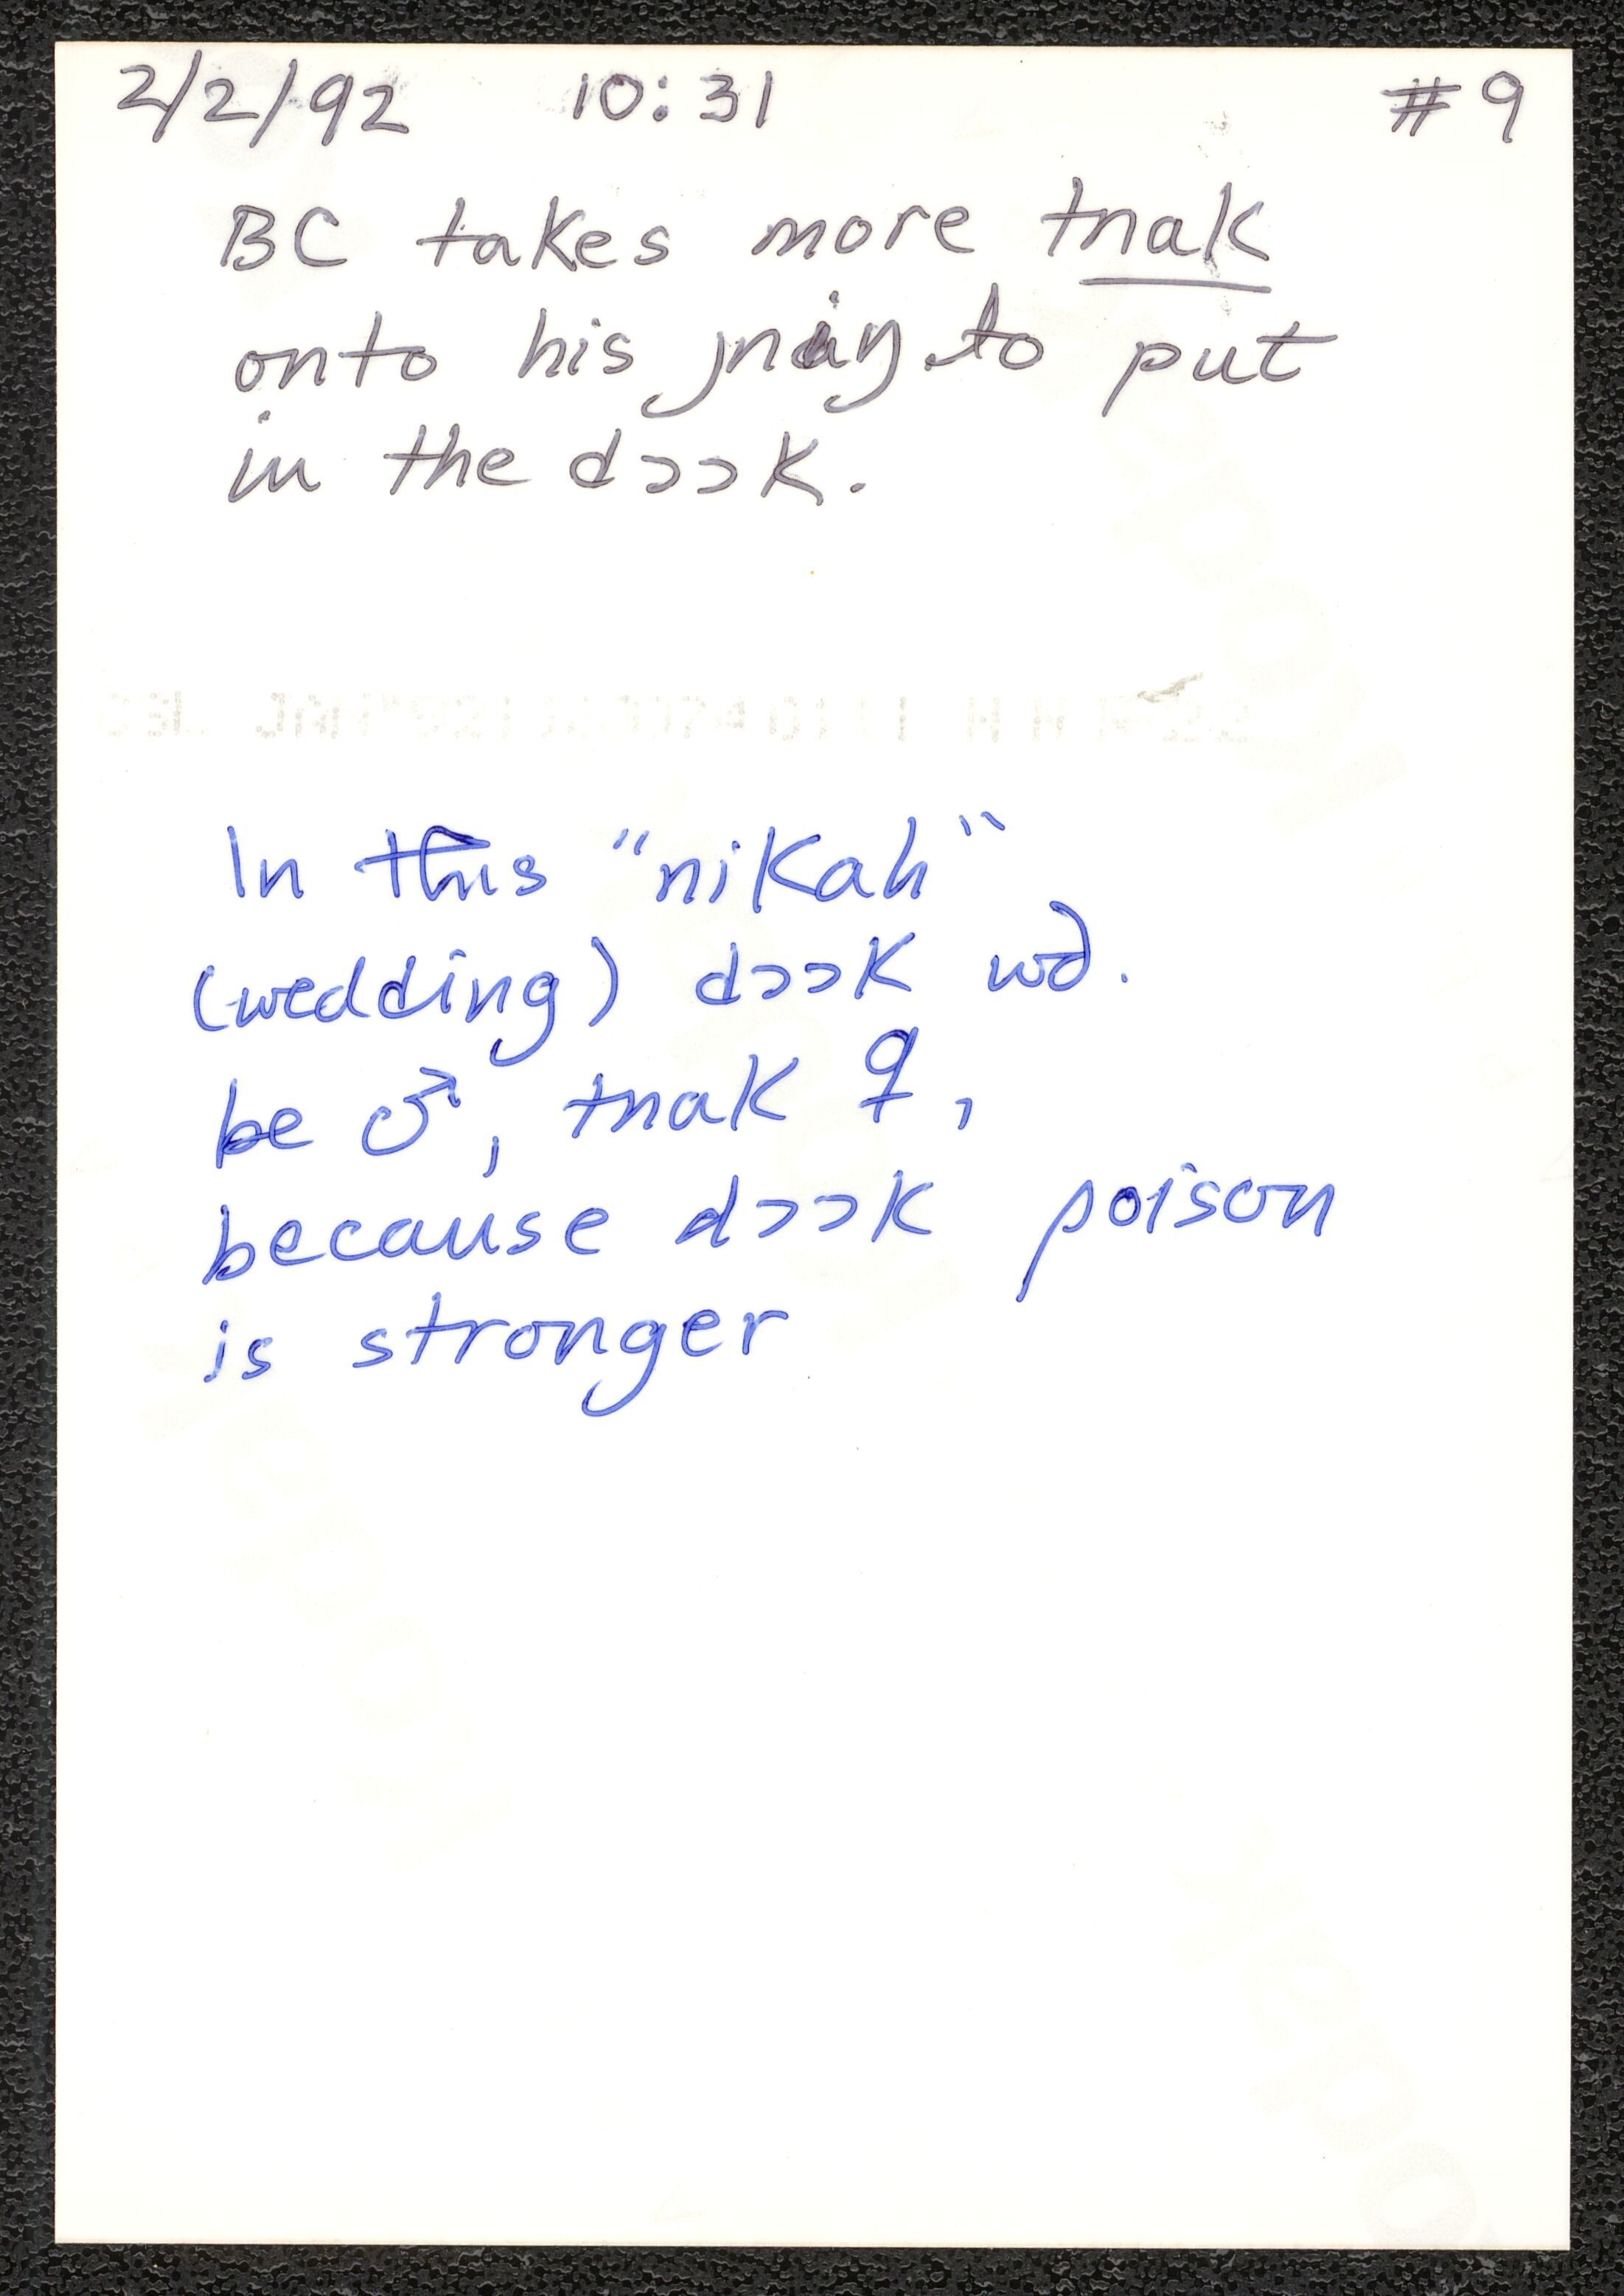 2/2/92 10:31 #9
BC takes more tnak
onto his to put
in the dɔɔk.
In this "nikah"
(wedding) dɔɔk wd.
be ♂, tnak ♀,
because dɔɔk poison
is stronger